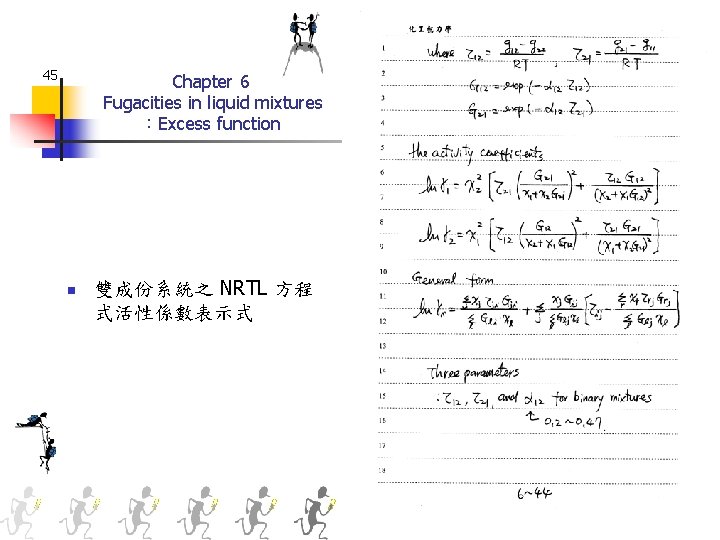 45
Chapter 6
Fugacities in liquid mixtures
：Excess function
雙成份系統之 NRTL 方程
式活性係數表示式
化工熱力學
1 where τ12 = (g12 - g22)/RT ; τ21 = (g21 - g11)/RT
2 G12 = exp(-α12 τ12)
3 G21 = exp(-α12 τ21)
4
5 the activity coefficients
6
7 ln γ1 = x2² [τ21 (G21/(x1+x2G21))² + τ12 G12/(x2+x1G12)²]
8
9 ln γ2 = x1² [τ12 (G12/(x2+x1G12))² + τ21 G21/(x1+x2G21)²]
10 General form
11
12
13
14 Three parameters
15 : τ12, τ21, and α12 for binary mixtures
16 ↑ 0.2~0.47
17
18
6~44